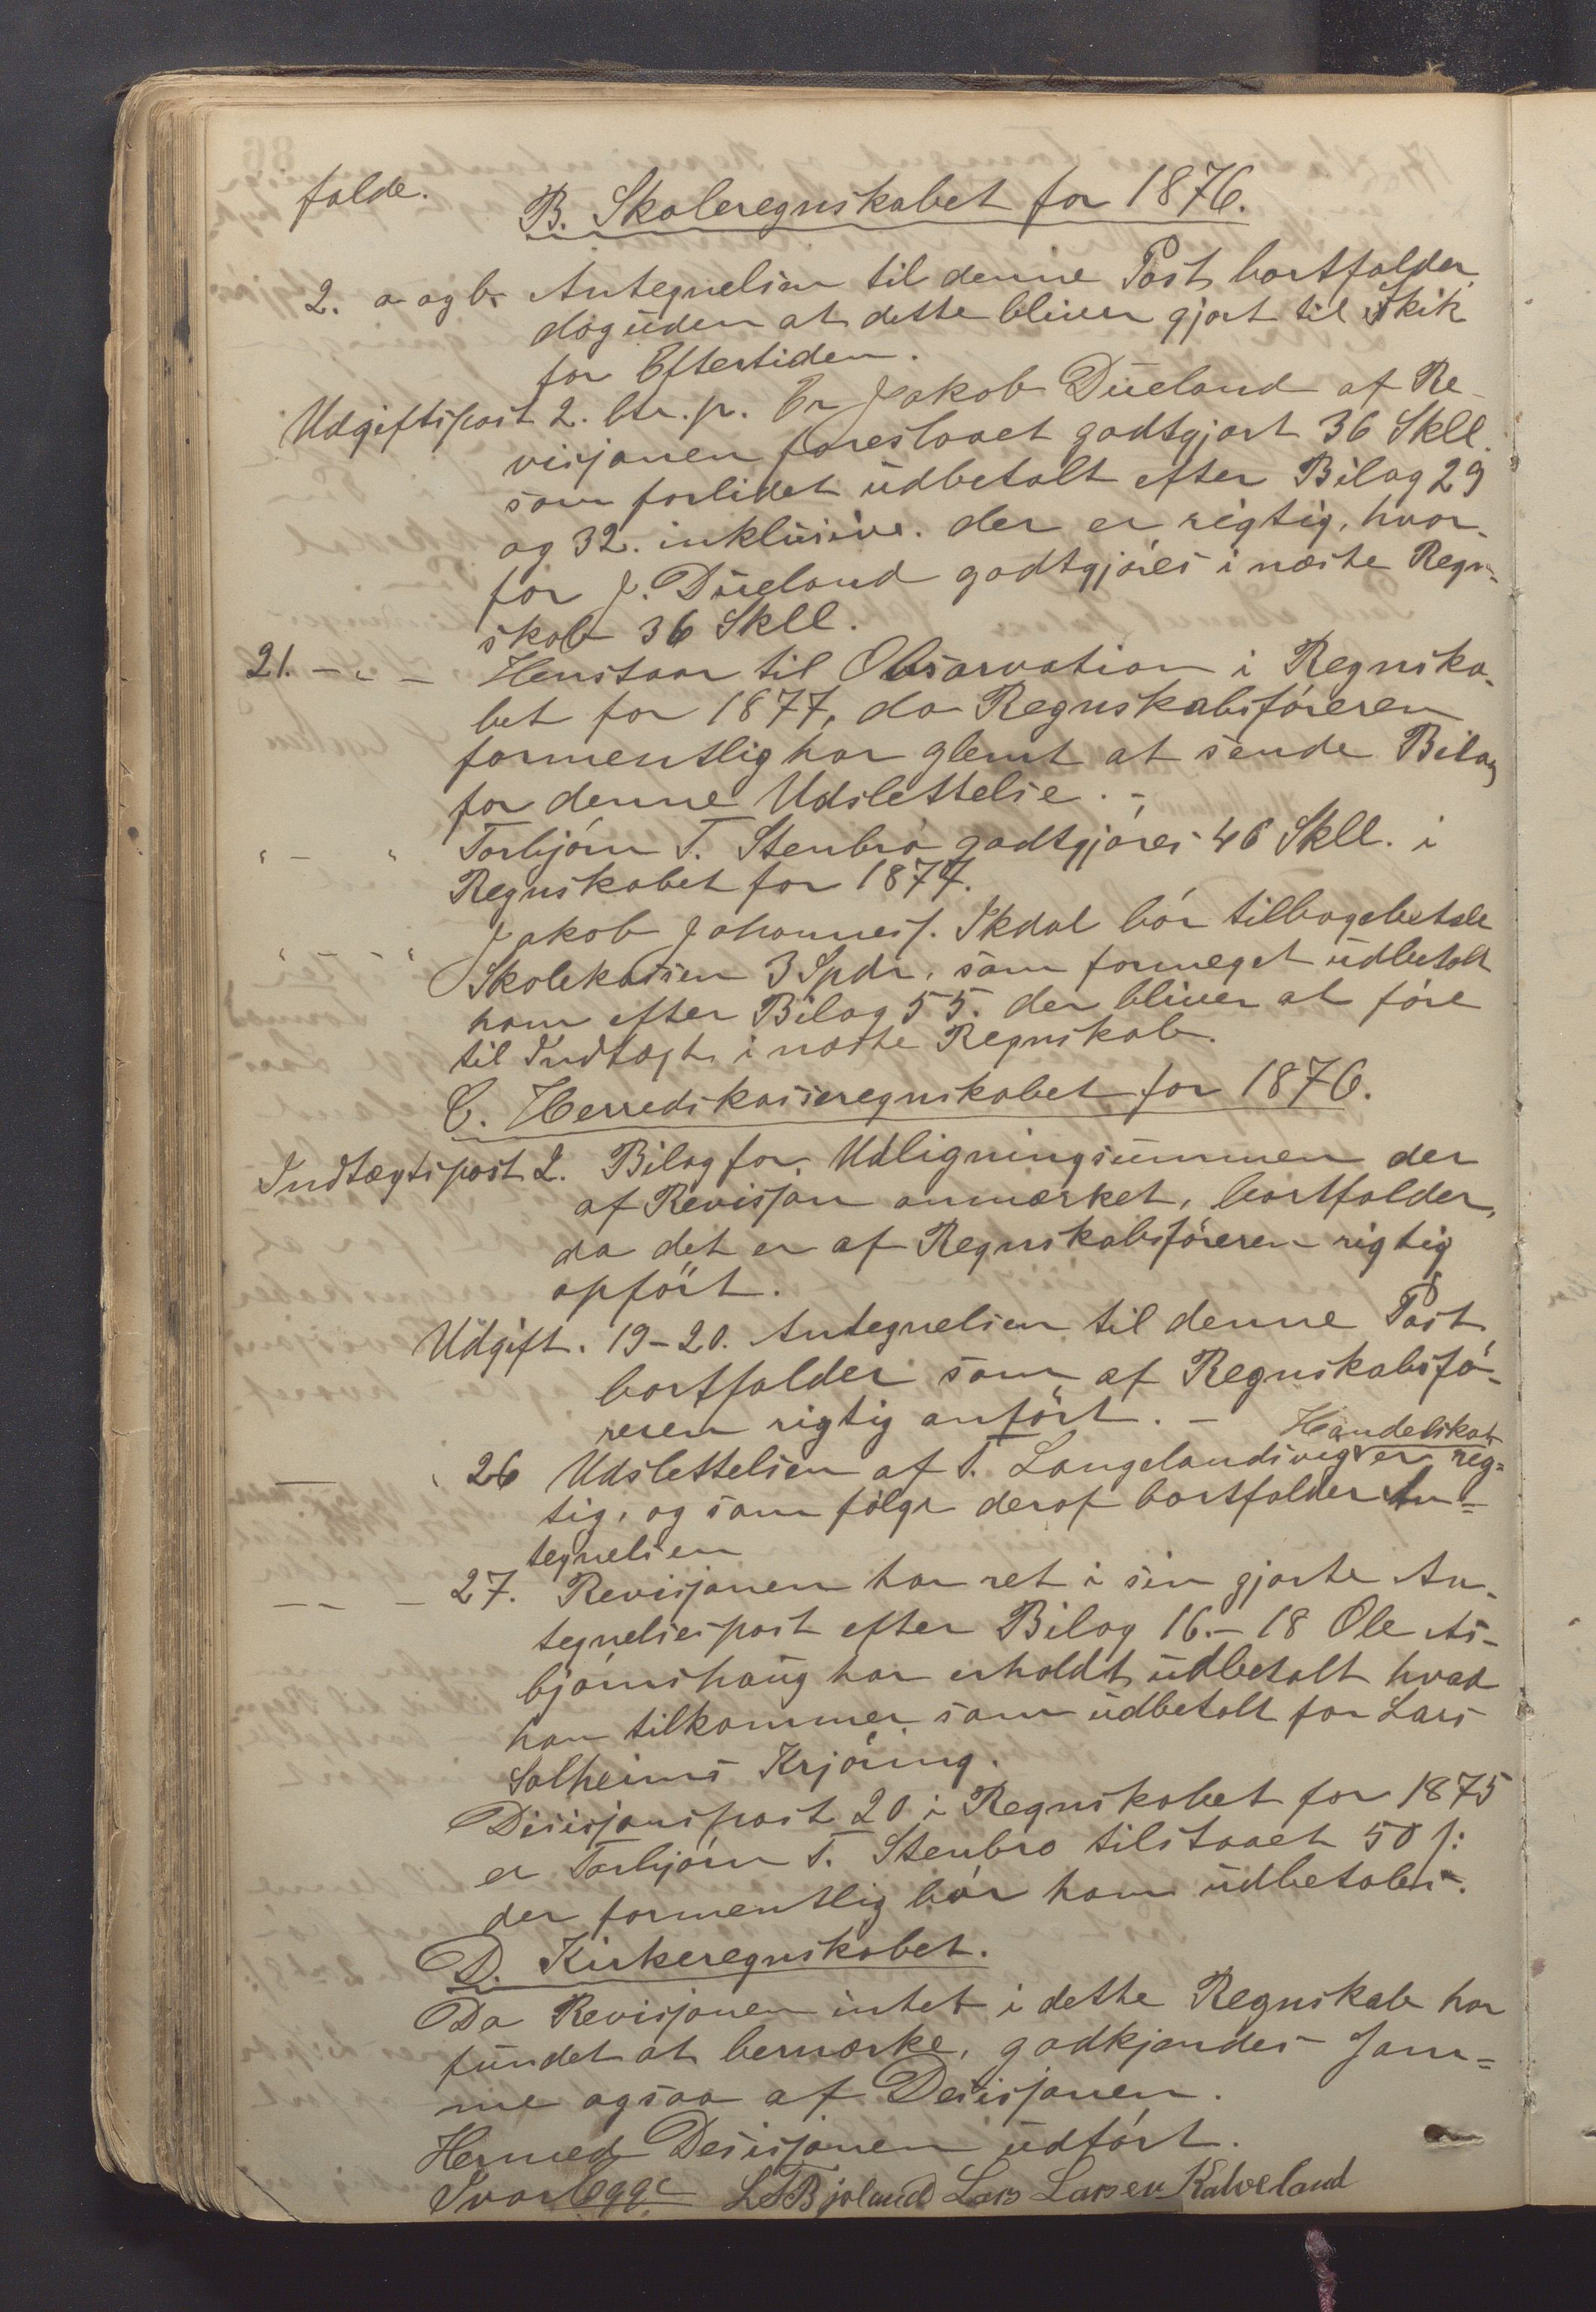 falde.
B. Skoleregnskabet for 1876.
2. a og b. Antegnelsen til denne Post bortfalder,
dog uden at dette bliver gjort til Skik
for Eftertiden.
Udgiftspost 2. Er Jakob Düeland af Re-
visjonen foreslaaet godtgjort 36 Skll.
som forlidet üdbetalt efter Bilag 29
og 32. inklüsive. der er rigtig, hvor-
for J. Düeland godtgjøres i næste Regn-
skab 36 Skll.
21. - " - Henstaar til Observation i Regnska-
bet for 1877, da Regnskabsføreren
formentlig har glemt at sende Bilag
for denne Udslettelse. -
" - " Torbjørn T. Stenbrø godtgjøres 46 Skll. i
Regnskabet for 1877.
" - - " Jakob Johannesf. Ikdal bør tilbagebetale
Skolekassen 3 Spdr. som formeget üdbetalt
ham efter Bilag 55. der bliver at føre
til Indtægt i næste Regnskab.
C. Herredskasseregnskabet for 1876.
Indtægtspost 2. Bilag for Udligningsümmen der
af Revisjon anmærket, bortfalder,
da det er af Regnskabsføreren rigtig
opført.
Udgift. 19-20. Antegnelsen til denne Post
bortfalder som af Regnskabsfø-
reren rigtig anført. -
Handelskat
— " 26 Udslettelsen af T. Langelandsvig er rig-
tig, og som følge deraf bortfalder An-
tegnelsen
-- - 27. Revisjonen har ret i sin gjorte An-
tegnelsespost efter Bilag 16.-18 Ole As-
bjørnshaüg har erholdt üdbetalt hvad
han tilkommer som üdbetalt for Lars
Solheims Kjøring.
Disisjonspost 20 i Regnskabet for 1875
er Torbjørn T. Stenbro tilstaaet 50 ſ:
der formentlig bør ham üdbetales.
D. Kirkeregnskabet.
Da Revisjonen intet i dette Regnskab har
fündet at bemærke, godkjendes sam-
me ogsaa af Desisjonen.
Hermed Desisjonen üdført.
Ivar Egge L T Bjoland Lars Larsen Kalveland